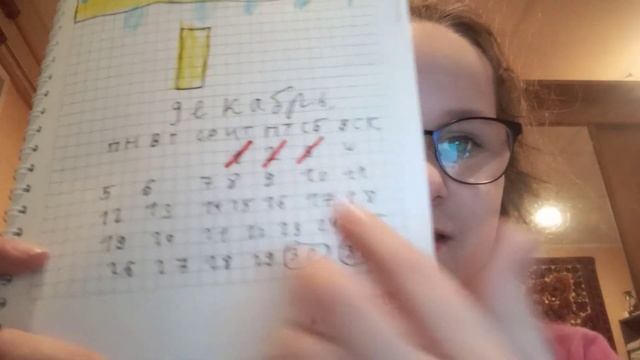 декабрь
ПН ВТ СР ЧТ ПТ СБ ВСК
4
5 6 7 8 9 10 11
12 13 14 15 16 17 18
19 20 21 22 23
26 27 28 29